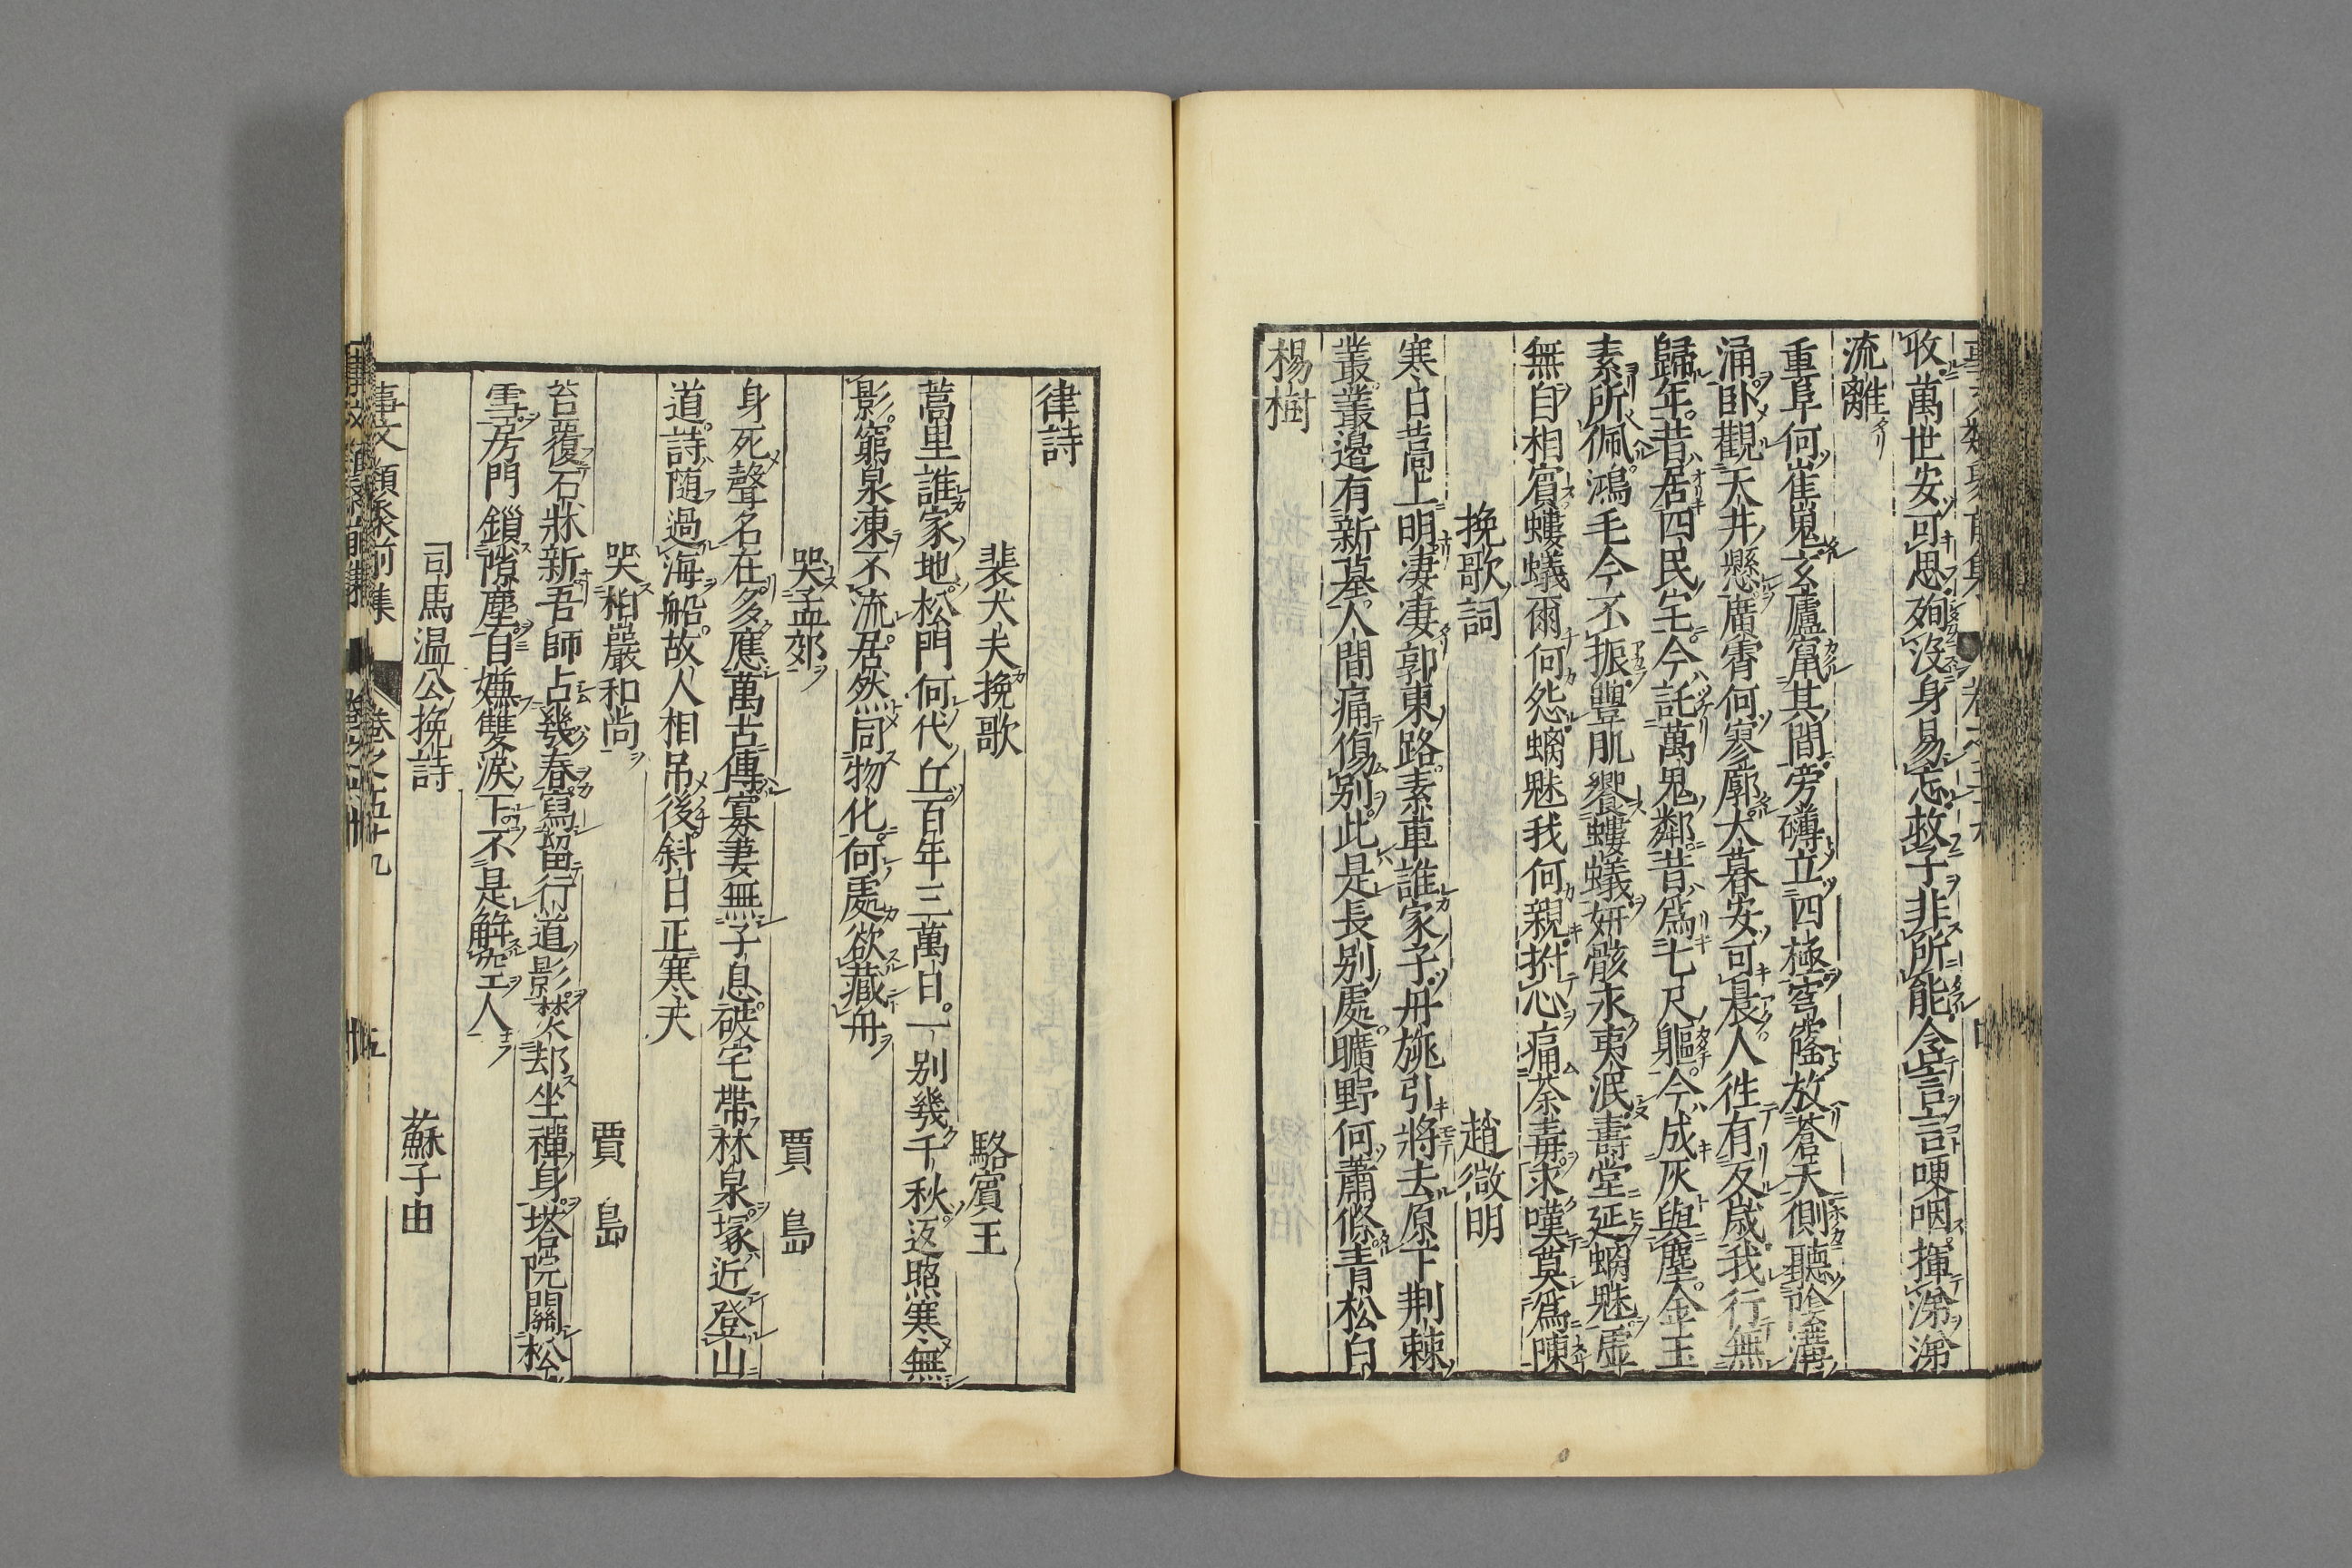 收萬世安可思殉沒身易忘救子非所能含言言哽咽揮涕涕
流離
重阜何崔嵬玄廬竄其間旁礴立四極穹窿放蒼天側聽陰溝
涌卧觀天井懸廣霄何寥廓大暮安可晨人徃有反歲我行無
歸年昔居四民宅今託萬鬼鄰昔爲七尺軀今成灰與塵金玉
素所佩鴻毛今不振豐肌饗螻蟻妍骸永夷泯壽堂延螭魅虛
無自相賓螻蟻爾何怨螭魅我何親拊心痛荼毒求嘆莫爲陳
挽歌詞 趙微明
寒日蒿上明凄凄郭東路素車誰家子丹旐引將去原下荆棘
叢叢邊有新墓人間痛傷别此是長别處曠野何蕭條青松白
楊樹
律詩
裴大夫挽歌 駱賓王
蒿里誰家地松門何代丘百年三萬日一别幾千秋返照寒無
影窮泉凍不流居然同物化何處欲藏舟
哭孟郊 賈島
身死聲名在多應萬古傳寡妻無子息破宅帶林泉塚近登山
道詩随過海船故人相吊後斜日正寒天
哭柏巖和尚 賈島
苔覆石牀新吾師占幾春寫留行道影焚却坐禪身塔院關松
雪房門鎖隙塵自嫌雙淚下不是解空人
司馬温公挽詩 蘇子由
事文類聚前集 卷之五十九 五